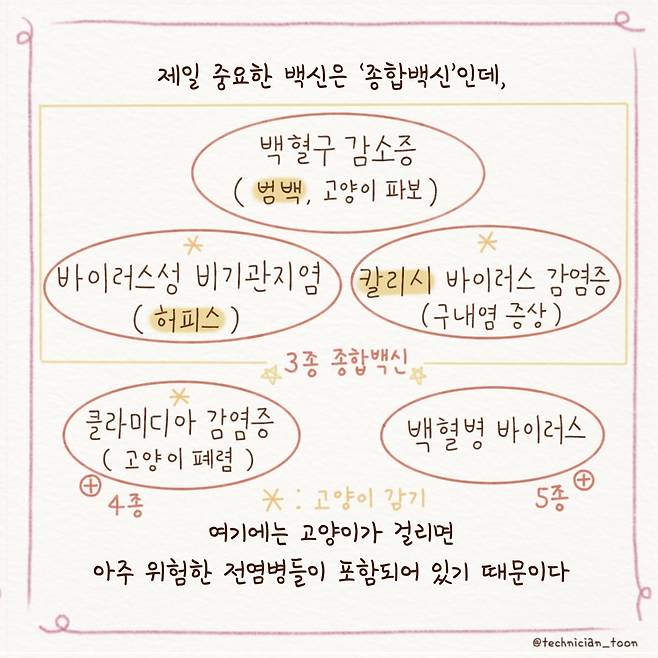 제일 중요한 백신은 '종합백신'인데,
백혈구 감소증
( 범백, 고양이 파보 )
바이러스성 비기관지염
( 허피스 )
칼리시 바이러스 감염증
( 구내염 증상 )
3종 종합백신
클라미디아 감염증
( 고양이 폐렴 )
백혈병 바이러스
⊕ 4종
* : 고양이 감기
5종 ⊕
여기에는 고양이가 걸리면
아주 위험한 전염병들이 포함되어 있기 때문이다
@technician_toon